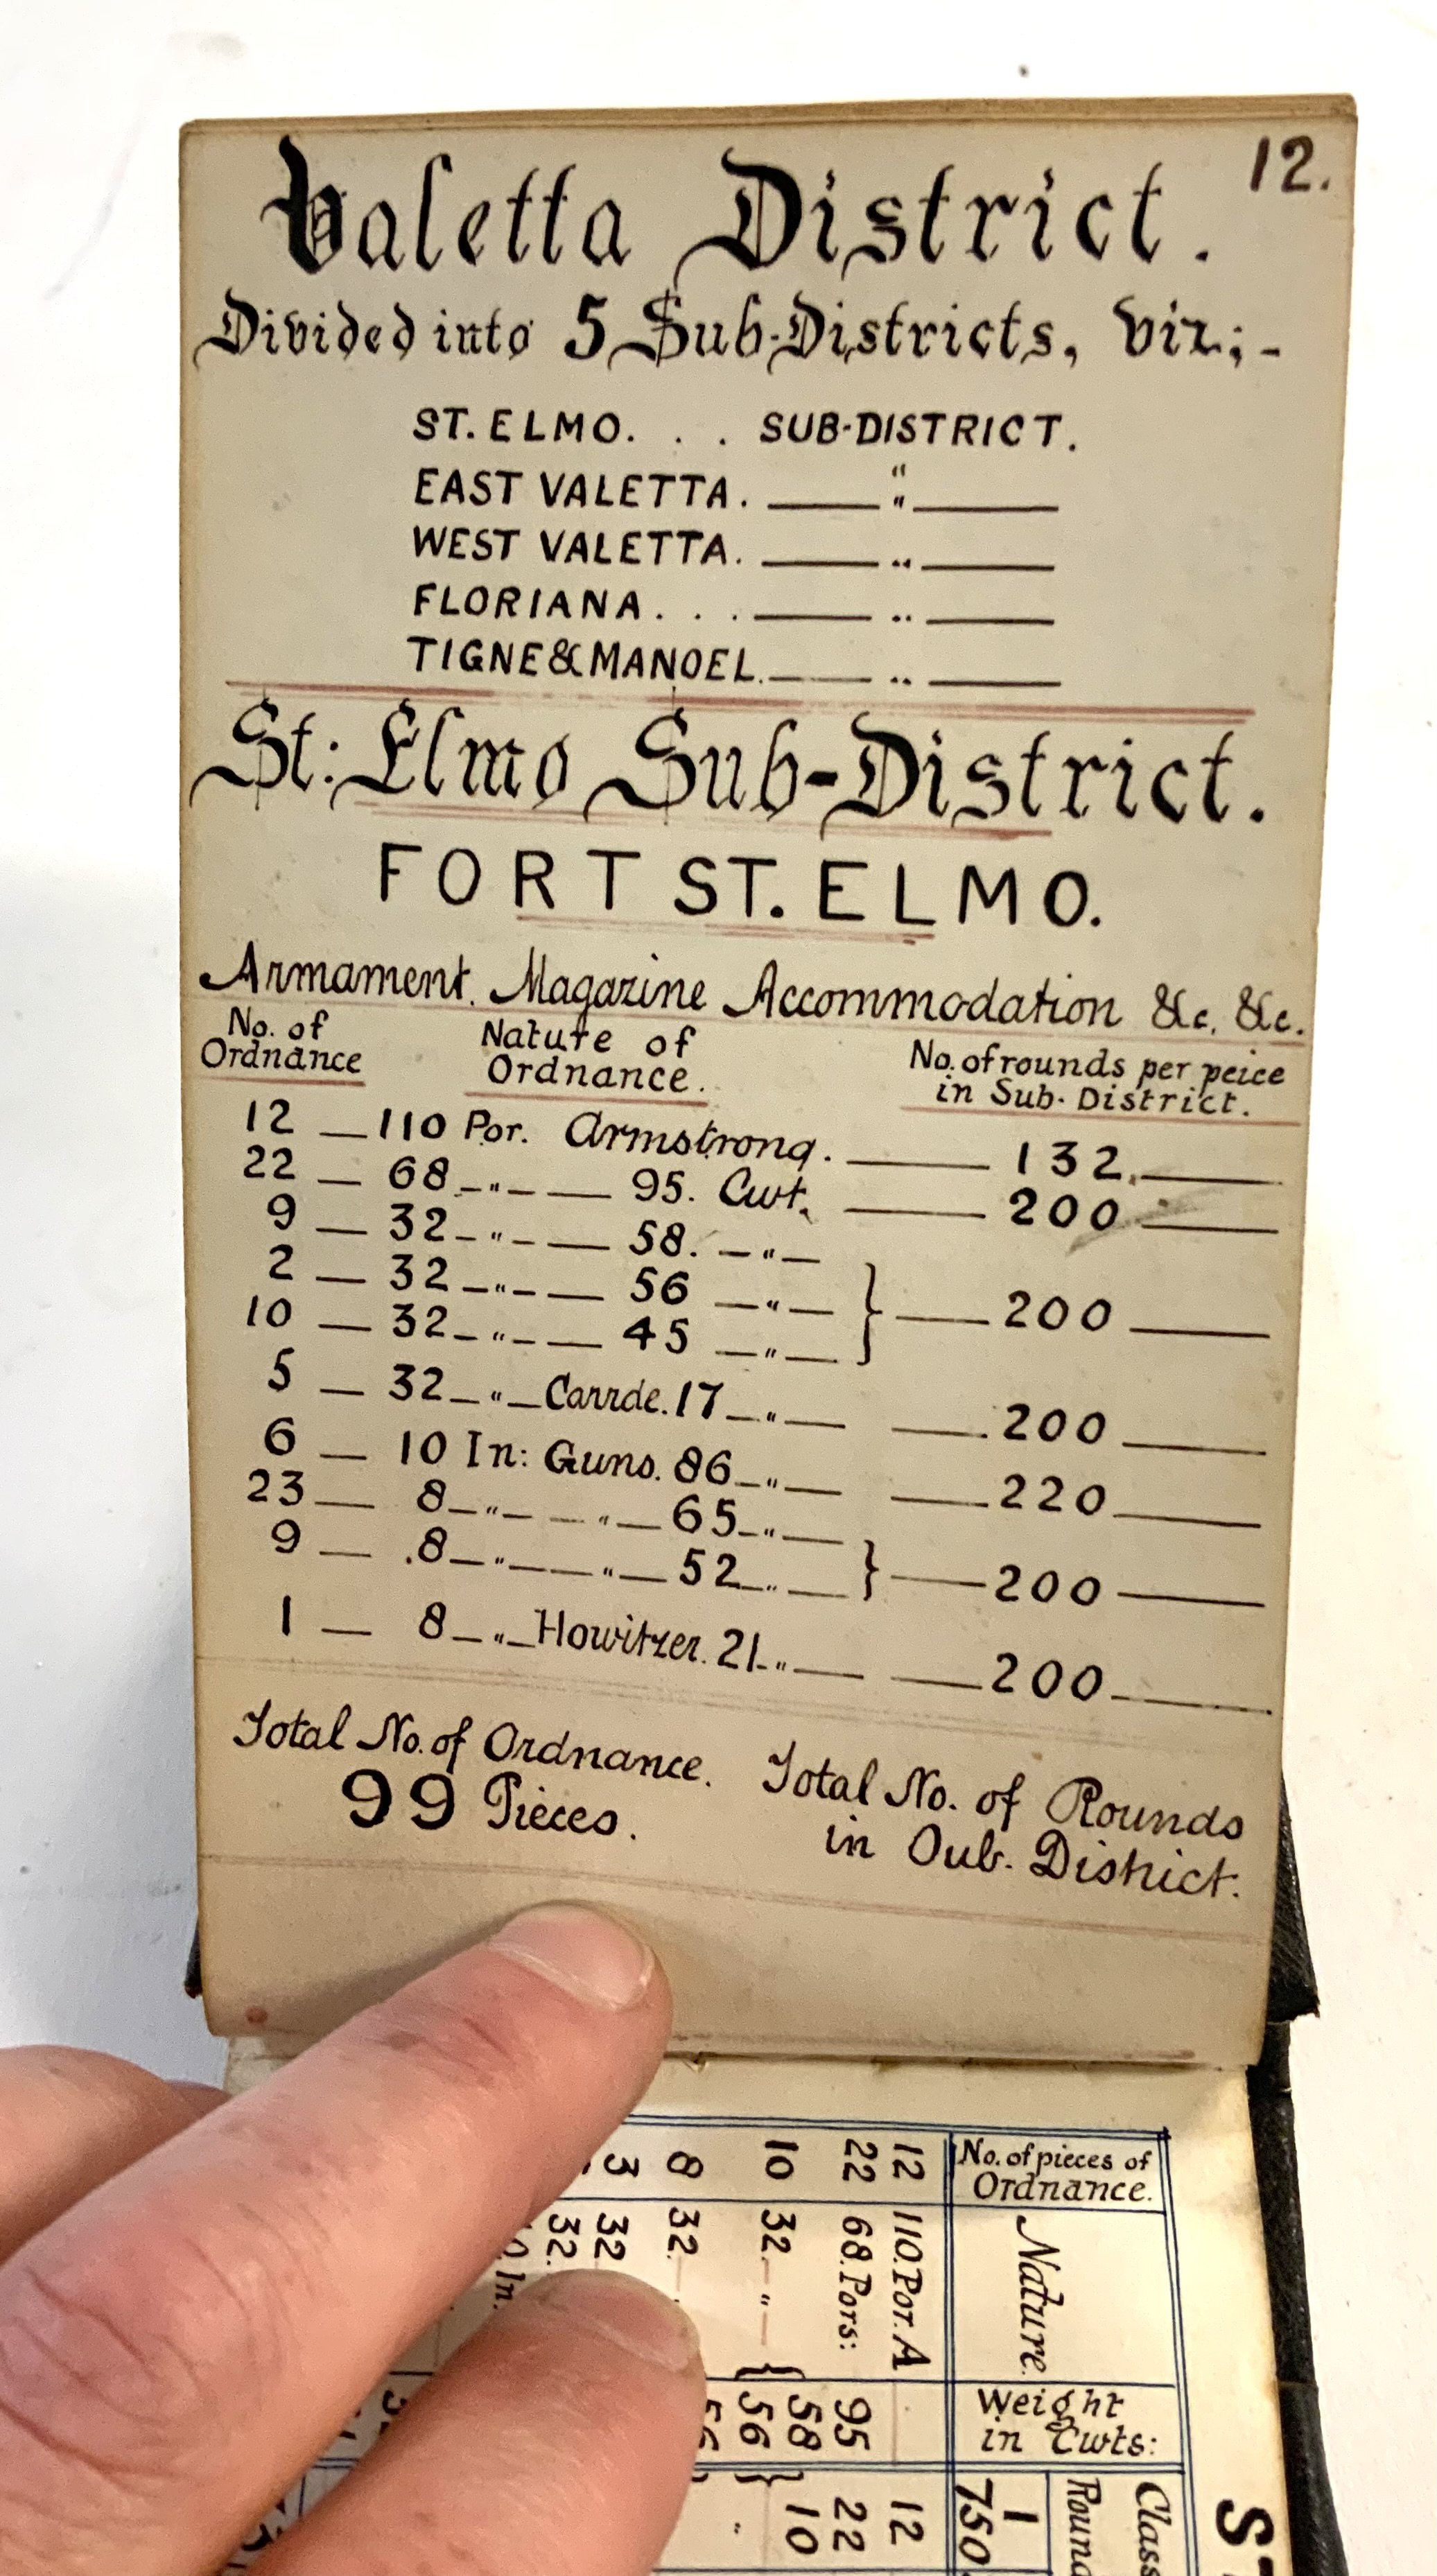 12.
Valetta District.
Divided into 5 Sub-Districts, viz;-
ST. ELMO. . . SUB-DISTRICT.
EAST VALETTA. —— " ——
WEST VALETTA. —— " ——
FLORIANA. . . —— " ——
TIGNE & MANOEL. —— " ——
St: Elmo Sub-District.
FORT ST. ELMO.
Armament. Magazine Accommodation &c. &c.
No. of Ordnance Nature of Ordnance. No. of rounds per peice in Sub-District.
12 — 110 Por. Armstrong. —— 132. ——
22 — 68 — " — 95. Cwt. —— 200 ——
9 — 32 — " — 58. — " —
2 — 32 — " — 56 — " — } —— 200 ——
10 — 32 — " — 45 — " —
5 — 32 — " — Carrde. 17 — " — —— 200 ——
6 — 10 In: Guns. 86 — " — —— 220 ——
23 — 8 — " — " — 65 — " —
9 — .8 — " — " — 52 — " — } —— 200 ——
1 — 8 — " — Howitzer. 21 — " — —— 200 ——
Total No. of Ordnance. Total No. of Rounds
99 Pieces. in Sub. District.
No. of pieces of Ordnance.
Nature
Weight in Cwts:
Class
Round
1
750
12 110. Por. A 12
22 68. Pors: 95 22
10 32 — " — { 58 56 } 10
8 32
3 32
32
In.